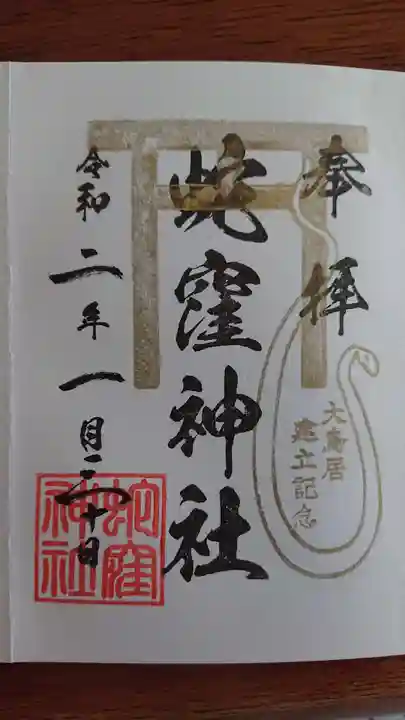 奉拝
大鳥居
建立記念
蛇窪神社
令和二年一月三十日
蛇窪
神社